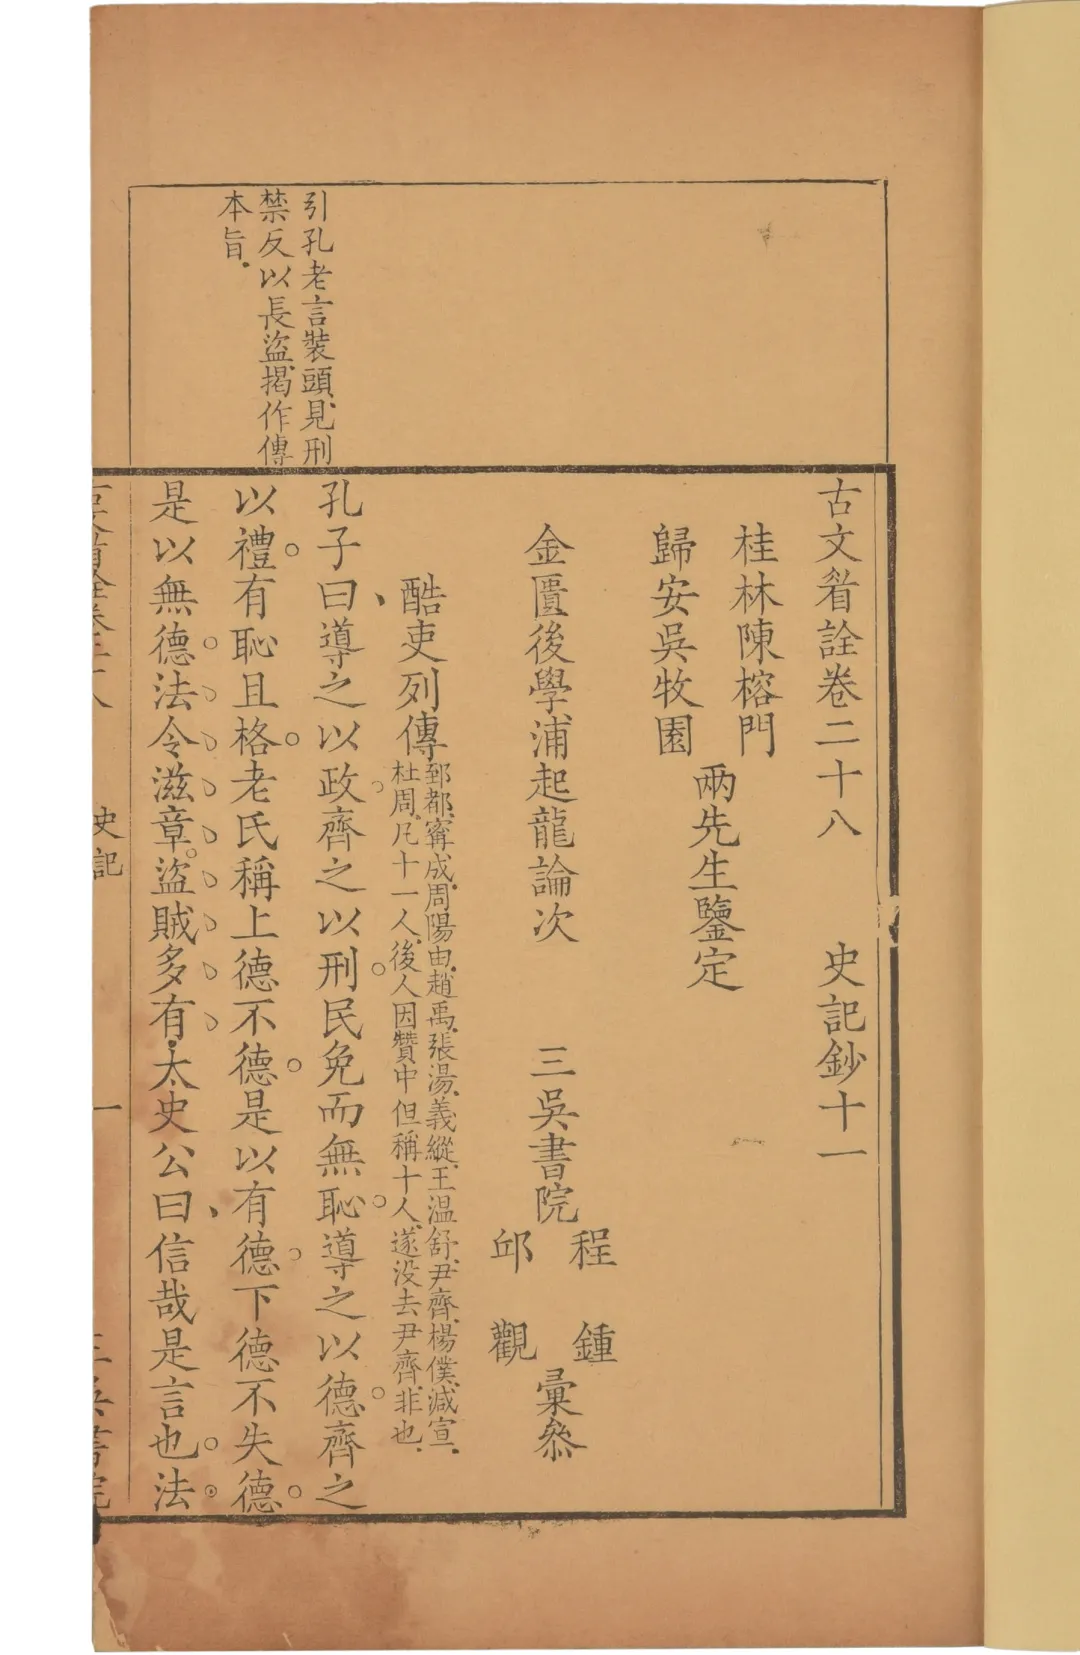 古文眉詮卷二十八　史記鈔十一
桂林陳榕門
歸安吳牧園
兩先生鑒定
金匱後學浦起龍論次　三吳書院
程鍾
邱觀
彙叅
酷吏列傳
郅都、甯成、周陽由、趙禹、張湯、義縱、王温舒、尹齊、楊僕、減宣、
杜周、凡十一人、後人因贊中但稱十人、遂沒去尹齊、非也、
孔子曰、導之以政齊之以刑民免而無恥導之以德齊之
以禮有恥且格老氏稱上德不德是以有德下德不失德
是以無德法令滋章盜賊多有太史公曰、信哉是言也法
引孔老言裝頭、見刑
禁反以長盜、揭作傳
本旨、
史記
一